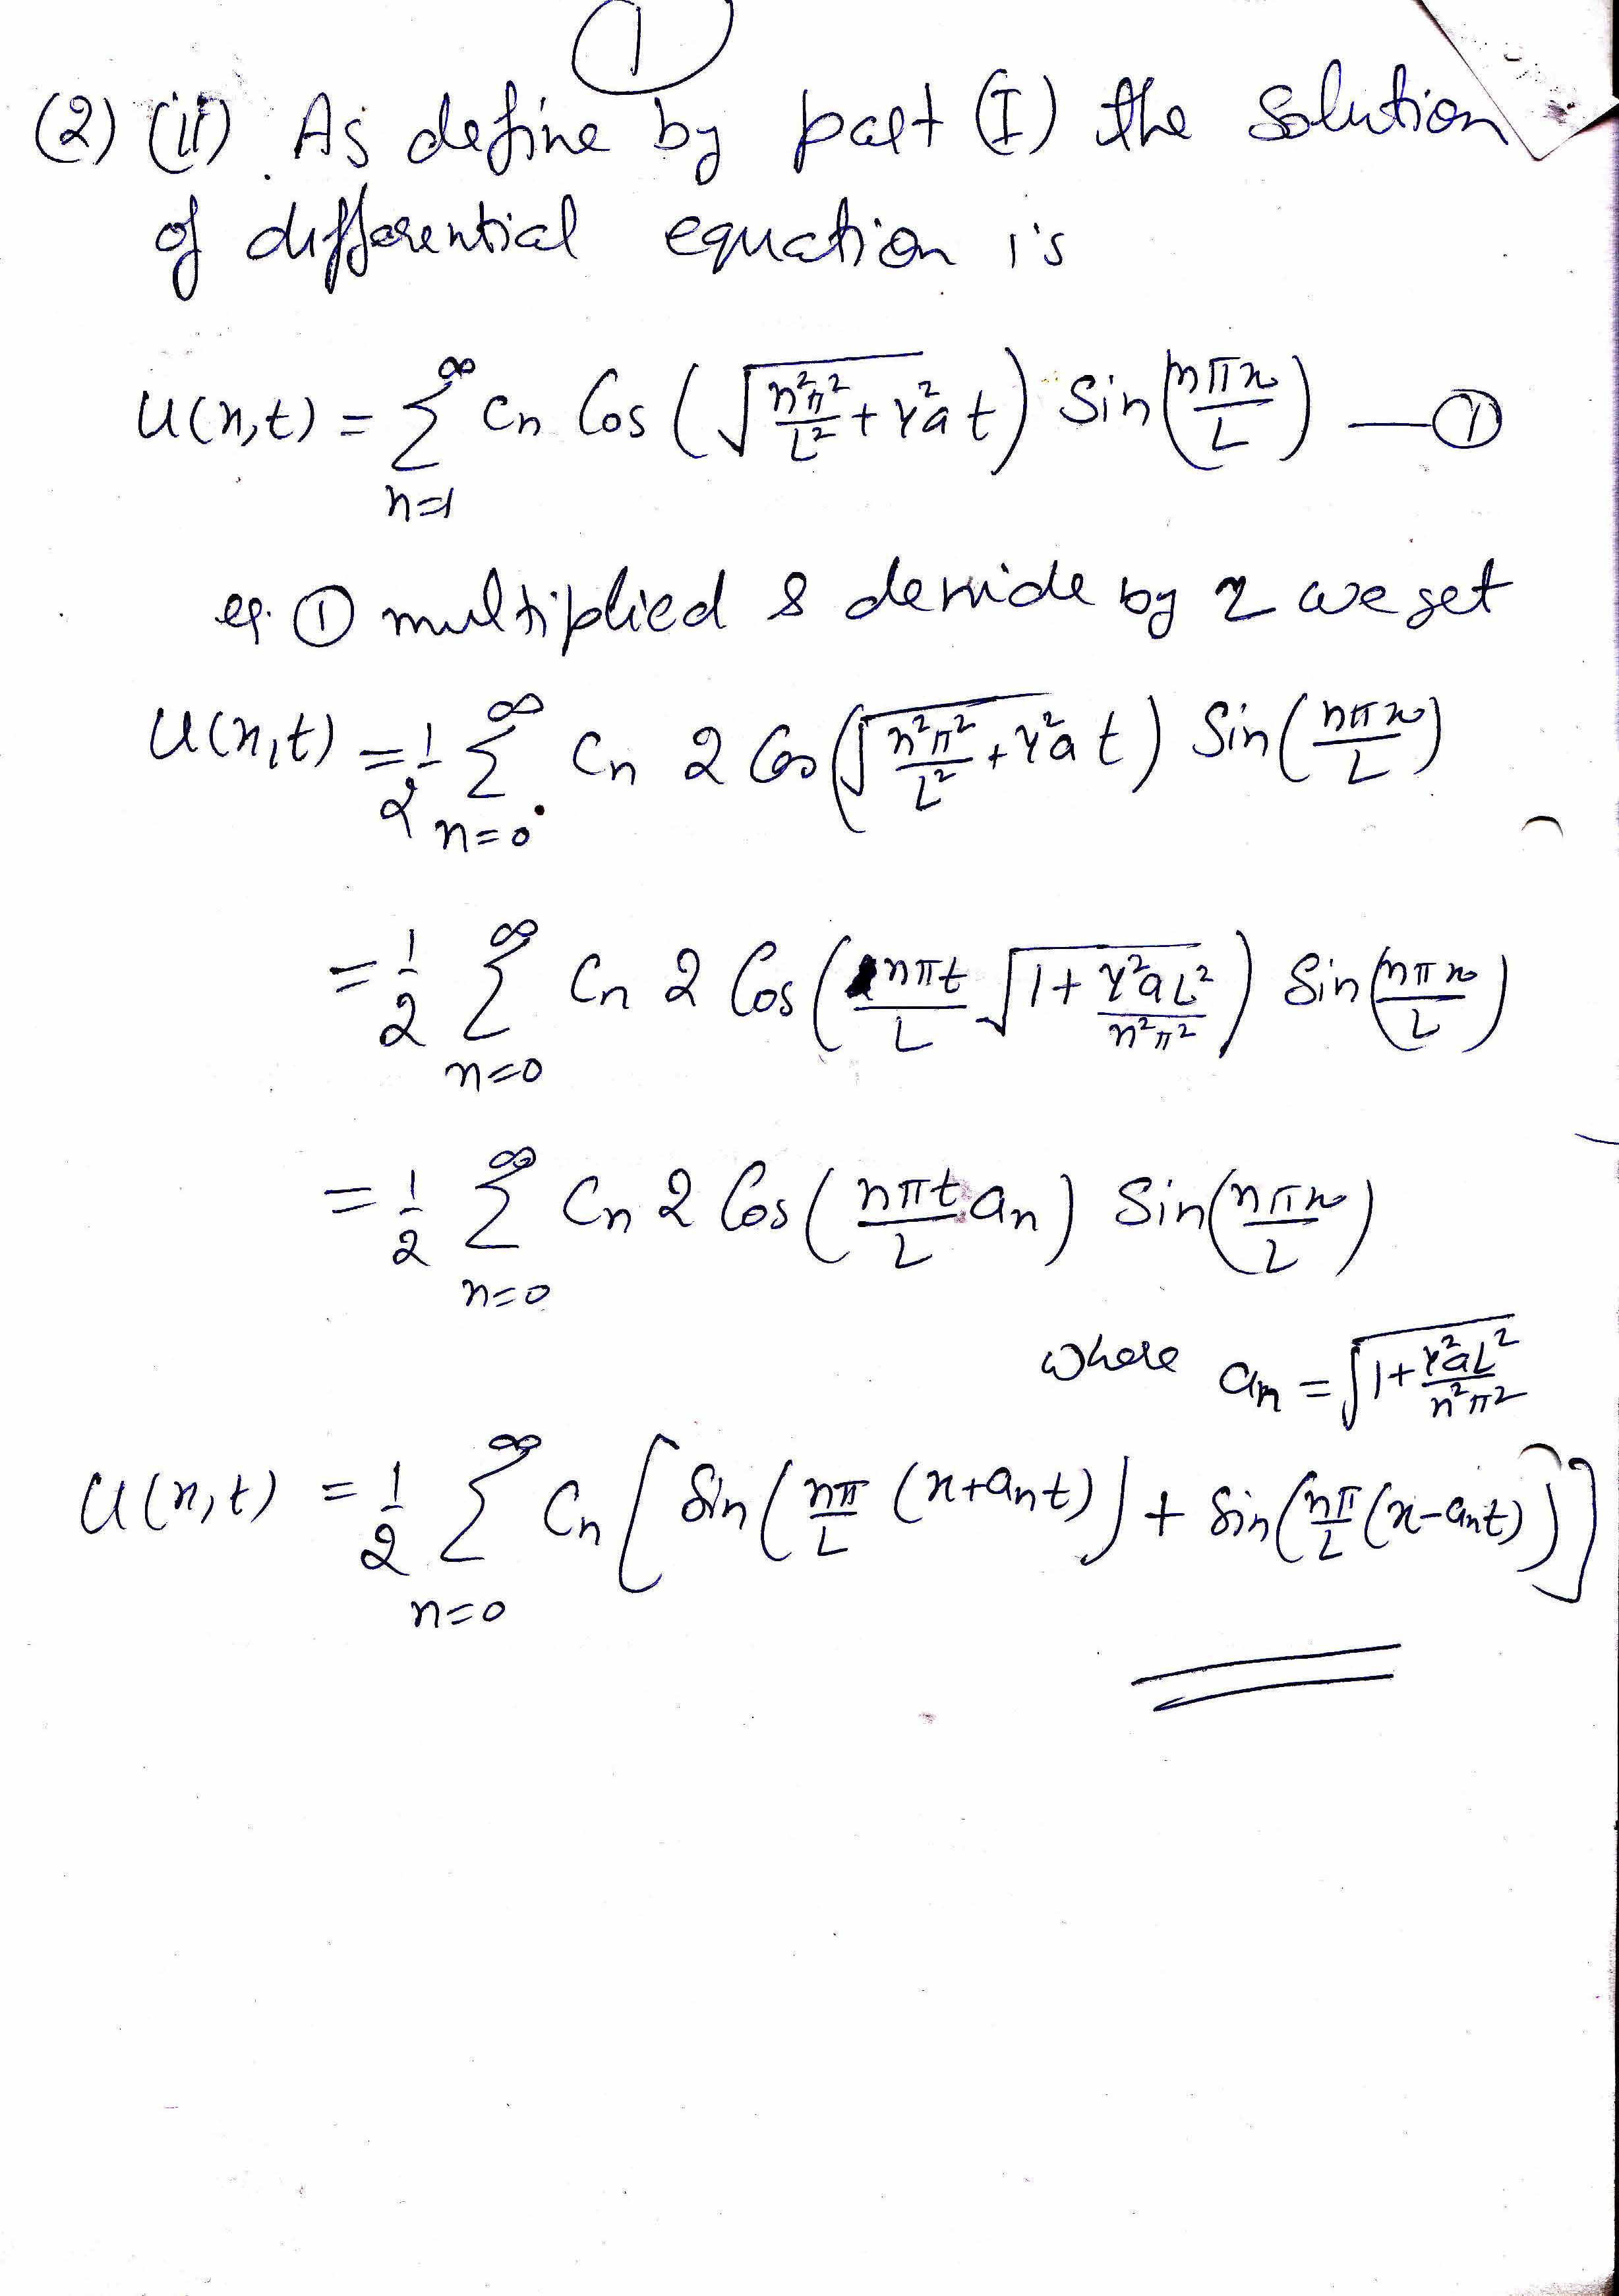 1
(2) (ii) As define by part (I) the solution
of differential equation is
U(x,t) = ∑_{n=1}^{∞} Cn Cos (√(n²π²/L² + γ²a) t) Sin(nπx/L) — ①
eq. ① multiplied & devide by 2 we get
U(x,t) = 1/2 ∑_{n=0}^{∞} Cn 2 Cos(√(n²π²/L² + γ²a) t) Sin(nπx/L)
= 1/2 ∑_{n=0}^{∞} Cn 2 Cos(nπt/L √(1 + γ²aL²/n²π²)) Sin(nπx/L)
= 1/2 ∑_{n=0}^{∞} Cn 2 Cos(nπt/L an) Sin(nπx/L)
where an = √(1 + γ²aL²/n²π²)
U(x,t) = 1/2 ∑_{n=0}^{∞} Cn [Sin(nπ/L (x+ant)) + Sin(nπ/L (x-ant))]